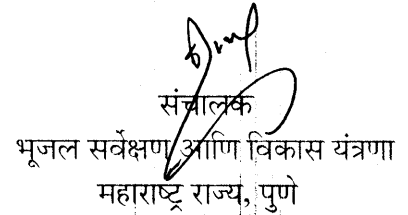 संचालक
भूजल सर्वेक्षण आणि विकास यंत्रणा
महाराष्ट्र राज्य, पुणे